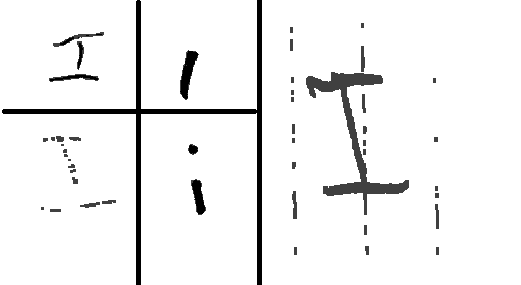 I l
I i
I